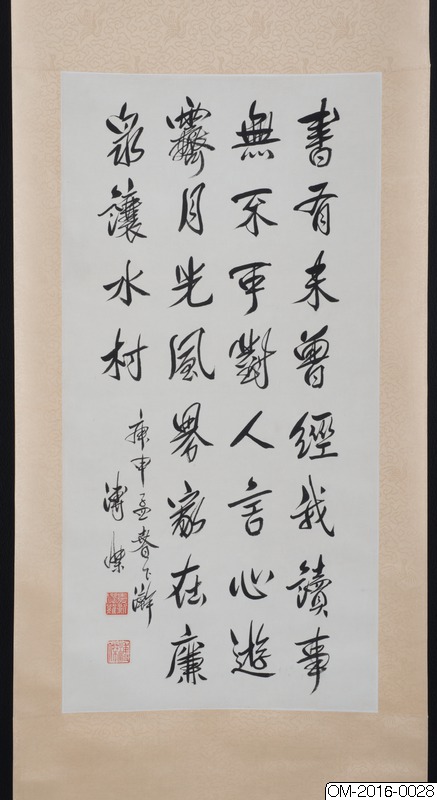 書有未曾經我讀事
無不可對人言心遊
霽月光風界家在廉
泉讓水村
庚申孟春下澣
溥傑
OM-2016-0028